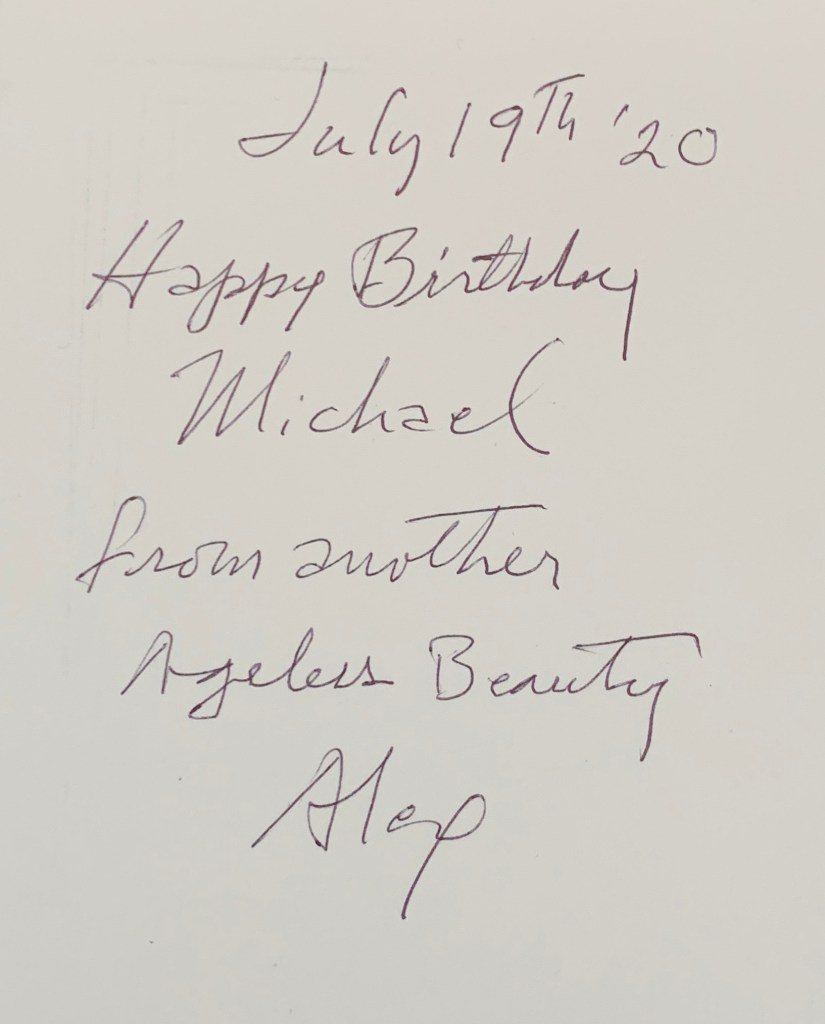 July 19Th '20
Happy Birthday
Michael
from another
Ageless Beauty
Alex